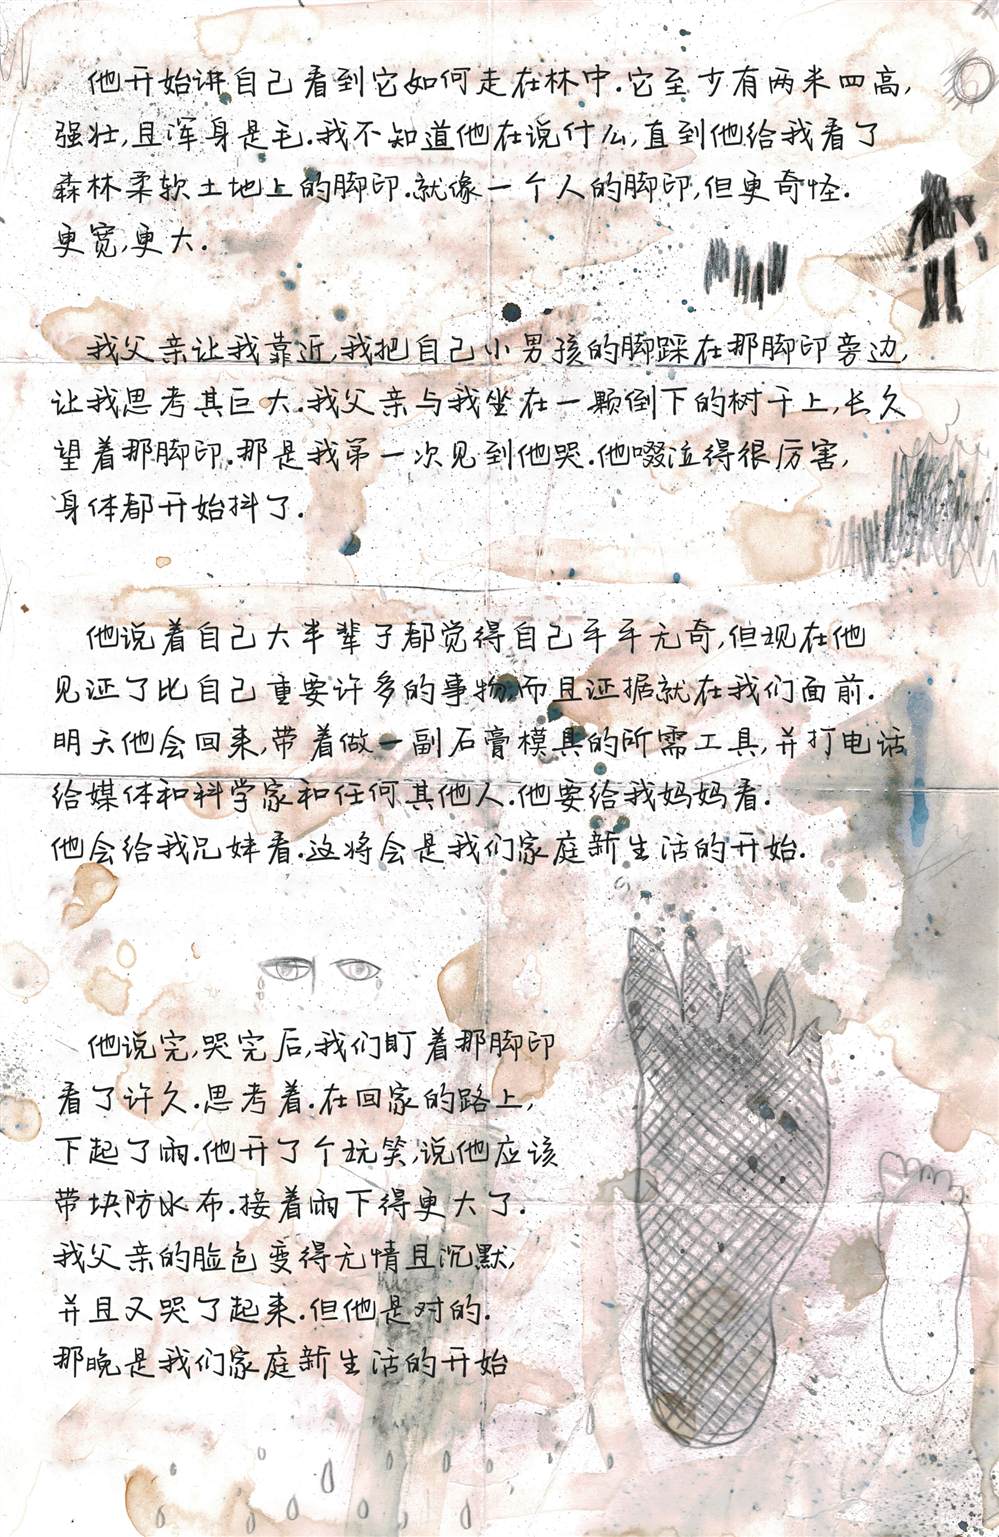 他开始讲自己看到它如何走在林中.它至少有两米四高,
强壮,且浑身是毛.我不知道他在说什么,直到他给我看了
森林柔软土地上的脚印.就像一个人的脚印,但更奇怪.
更宽,更大.
我父亲让我靠近,我把自己小男孩的脚踩在那脚印旁边,
让我思考其巨大.我父亲与我坐在一颗倒下的树干上,长久
望着那脚印.那是我第一次见到他哭.他啜泣得很厉害,
身体都开始抖了.
他说着自己大半辈子都觉得自己平平无奇,但现在他
见证了比自己重要许多的事物,而且证据就在我们面前.
明天他会回来,带着做一副石膏模具的所需工具,并打电话
给媒体和科学家和任何其他人.他要给我妈妈看.
他会给我兄妹看.这将会是我们家庭新生活的开始.
他说完,哭完后,我们盯着那脚印
看了许久.思考着.在回家的路上,
下起了雨.他开了个玩笑,说他应该
带块防水布.接着雨下得更大了.
我父亲的脸色变得无情且沉默,
并且又哭了起来.但他是对的.
那晚是我们家庭新生活的开始